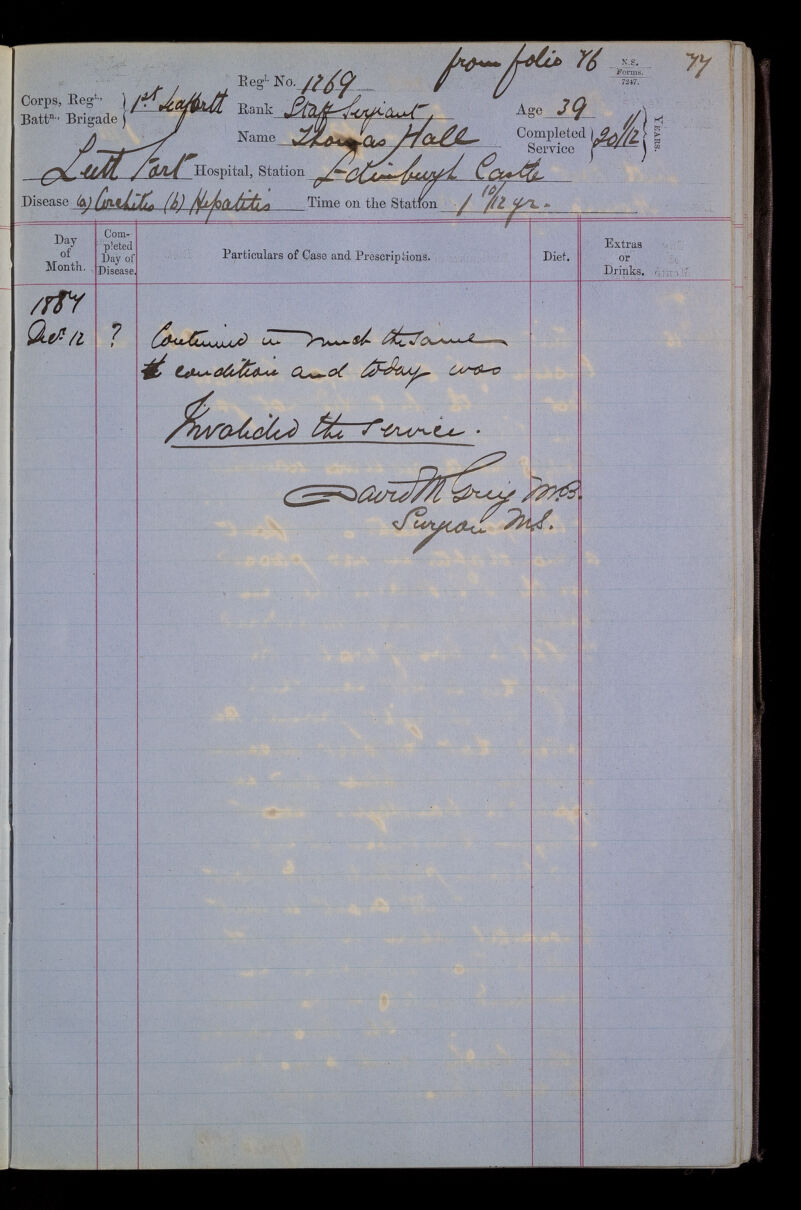 from folio 76 N.S. Forms. 7247. 77
Corps, Regt., Battn., Brigade } 1st Seaforth
Regl. No. 1269
Rank Staff Sergiant Age 39
Name Thomas Hall Completed Service } 20 1/12 { YEARS.
Leith Fort Hospital, Station Edinburgh Castle
Disease (a) (b) Hepatitis Time on the Station 1 10/12 yr.
Day of Month. Completed Day of Disease. Particulars of Case and Prescriptions. Diet. Extras or Drinks.
1887
Decr 12 ? Continued in much the same
condition and today was
Invalided the Service.
David M Greig M.B.
Surgeon M.S.